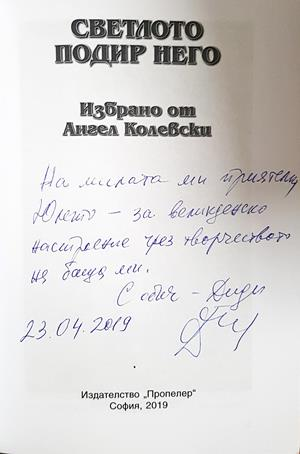 СВЕТЛОТО
ПОДИР НЕГО
Избрано от
Ангел Колевски
На милата ми приятелка
– за великденско
настроение чрез творчеството
на баща ми.
С обич – Диди
23.04.2019
Издателство „Пропелер“
София, 2019